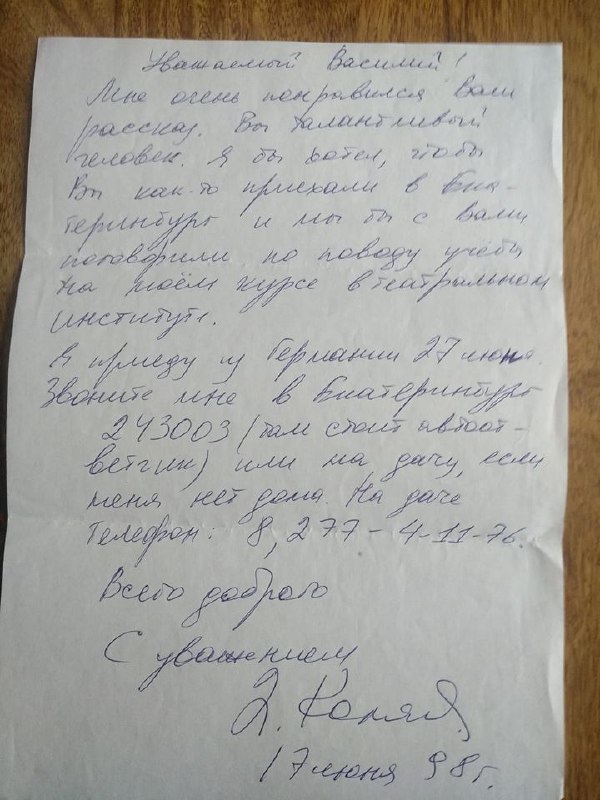 Уважаемый Василий!
Мне очень понравился Ваш
рассказ. Вы талантливый
человек. Я бы хотел, чтобы
Вы как-то приехали в Ека-
теринбург и мы бы с Вами
поговорили по поводу учёбы
на моём курсе в театральном
институте.
Я приеду из Германии 27 июня.
Звоните мне в Екатеринбург
243003 (там стоит автоот-
ветчик) или на дачу, если
меня нет дома. На даче
телефон: 8, 277-4-11-76.
Всего доброго
С уважением
Коляд.
17 июня 98 г.